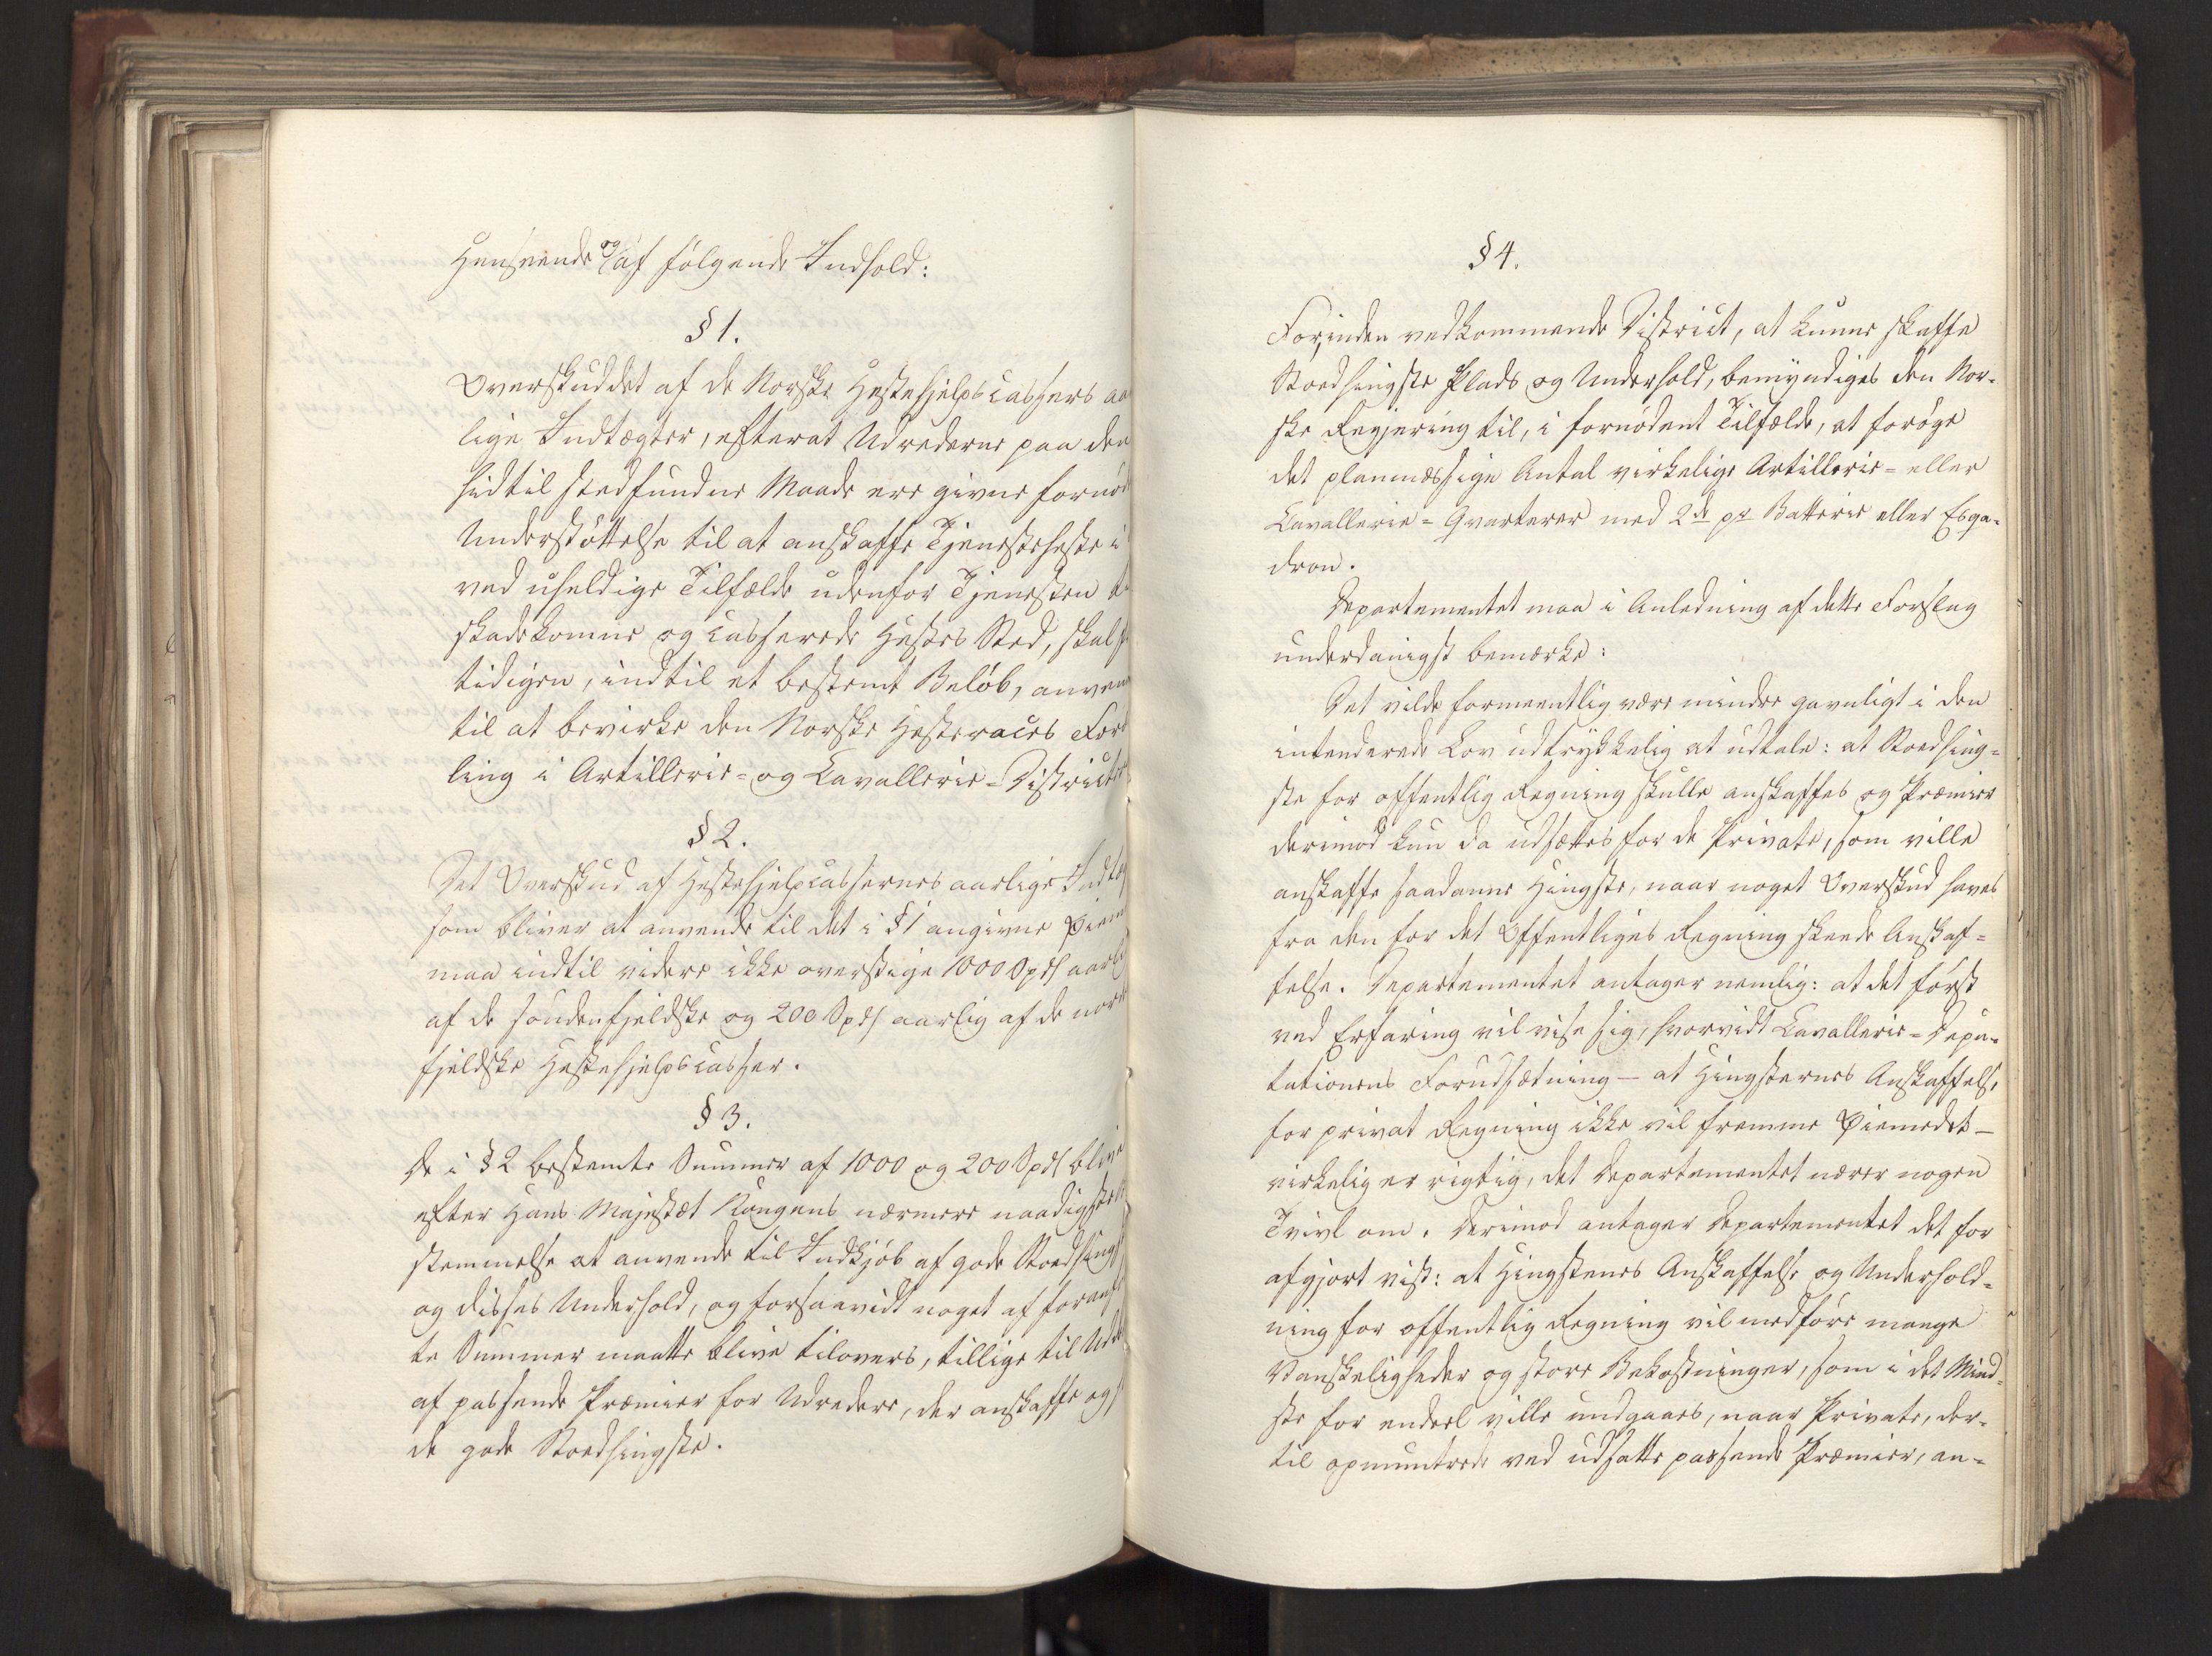 Henseende og af følgende Indhold:
§ 1.
Overskuddet af de Norske Hestehjelpscassers aa
lige Indtægter, efterat Udrederne paa den
hidtil stedfundne Maade ere givne fornød
Understøttelse til at anskaffe Tjenesteheste i
ved uheldige Tilfælde udenfor Tjenesten
skadekomne og casserede Hestes Sted, skal f
tidigen, indtil et bestemt Beløb, anven
til at bevirke den Norske Hesteraces Foræd
ling i Artillerie- og Cavallerie-Districter
§ 2.
Det Overskud af Hestehjelpcassernes aarlige Indtæg
som bliver at anvende til det i § 1 angivne Øiem
maa indtil videre ikke overstige 1000 Spd aarli
af de søndenfjeldske og 200 Spd aarlig af de nord
fjeldske Hestehjelpscasser.
§ 3.
De i § 2 bestemte Summer af 1000 og 200 Spd blive
efter Hans Majestæt Kongens nærmere naadigste
stemmelse at anvende til Indkjøb af gode Stodhingst
og disses Underhold, og forsaavidt noget af foranf
te Summer maatte blive tilovers, tillige til Udd
af passende Præmier for Udredere, der anskaffe og
de gode Stodhingste.
§ 4.
For, inden vedkommende District, at kunne skaffe
Stodhingste Plads og Underhold, bemyndiges den Nor-
ske Regjering til, i fornødent Tilfælde, at forøge
det planmæssige Antal virkelige Artillerie- eller
Cavallerie-Qvarterer med 2de pr Batterie eller Esqa-
dron.
Departementet maa i Anledning af dette Forslag
underdanigst bemærke:
Det vilde formeentlig være mindre gavnligt i den
intenderede Lov udtrykkelig at udtale: at Stodhing-
ste for offentlig Regning skulle anskaffes og Præmier
derimod kun da udsættes for de Private, som ville
anskaffe saadanne Hingste, naar noget Overskud haves
fra den for det Offentliges Regning skeede Anskaf-
felse. Departementet antager nemlig: at det først
ved Erfaring vil vise sig, hvorvidt Cavallerie-Depu-
tationens Forudsætning — at Hingsternes Anskaffelse
for privat Regning ikke vil fremme Øiemedet —
virkelig er rigtig, det Departementet nærer nogen
Tvivl om. Derimod antager Departementet det for
afgjort vist: at Hingstenes Anskaffelse og Underhold-
ning for offentlig Regning vil medføre mange
Vanskeligheder og store Bekostninger, som i det Mind-
ste for endeel ville undgaaes, naar Private, der-
til opmuntrede ved udsatte passende Præmier, an-